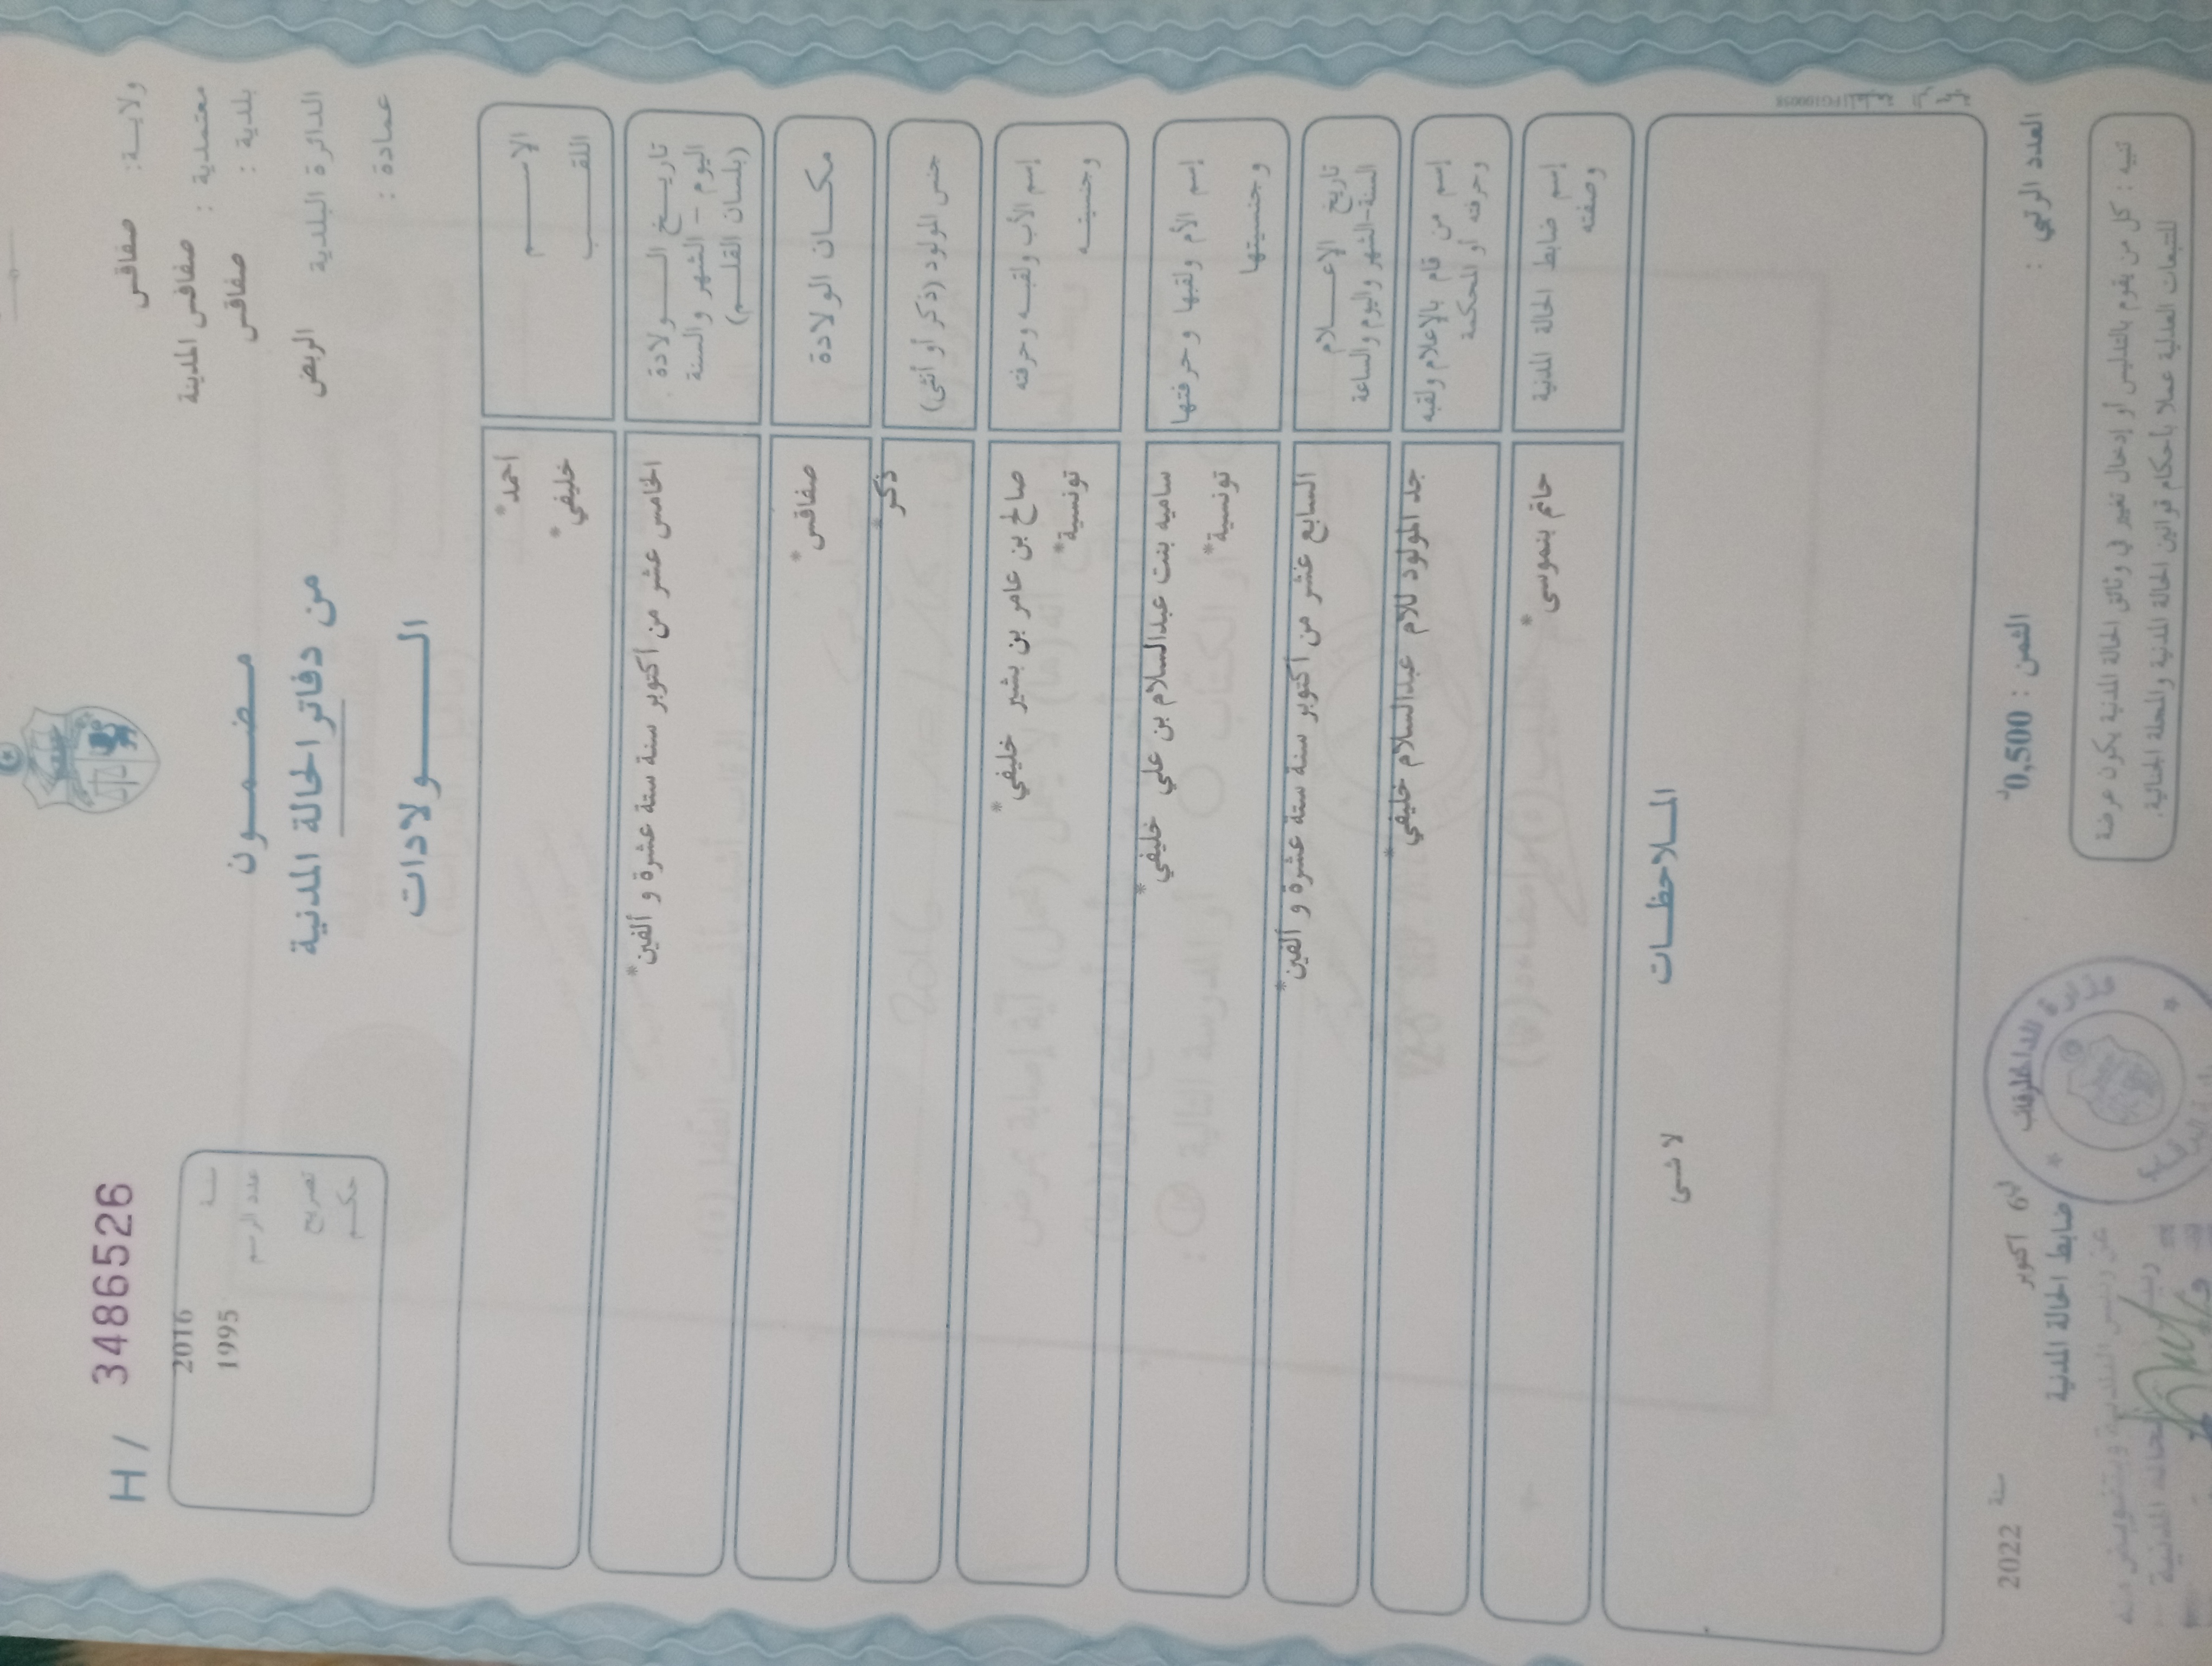 H / 3486526
ولايـة: صفاقس
معتمدية : صفاقس المدينة
بلدية : صفاقس
الدائرة البلدية الربض
عمادة :
سنة 2016
عدد الرسم 1995
تصريح
حكـم
مـضـمـون
من دفاتر الحالة المدنية
الـولادات
الإسـم أحمد*
اللقـب خليفي*
تاريـخ الـولادة الخامس عشر من أكتوبر سنة ستة عشرة و ألفين*
اليوم - الشهر والسنة
(بلسان القلـم)
مكـان الولادة صفاقس*
جنس المولود (ذكر أو أنثى) ذكر*
إسم الأب ولقبـه وحرفته صالح بن عامر بن بشير خليفي*
وجنسيتـه تونسية*
إسم الأم ولقبها وحرفتها ساميه بنت عبدالسلام بن علي خليفي*
وجنسيتها تونسية*
تاريخ الإعـلام السابع عشر من أكتوبر سنة ستة عشرة و ألفين*
السنة-الشهر واليوم والساعة
إسم من قام بالإعلام ولقبه جد المولود للام عبدالسلام خليفي*
وحرفته أو المحكمة
إسم ضابط الحالة المدنية حاتم بنموسى*
وصفته
المـلاحظـات
لا شى
العدد الرتبي :
الثمن : 0,500د
6 أكتوبر سنة 2022
ضابط الحالة المدنية
تنبيه : كل من يقوم بالتدليس أو إدخال تغيير في وثائق الحالة المدنية يكون عرضة
للتتبعات العدلية عملا بأحكام قوانين الحالة المدنية والمجلة الجنائية.